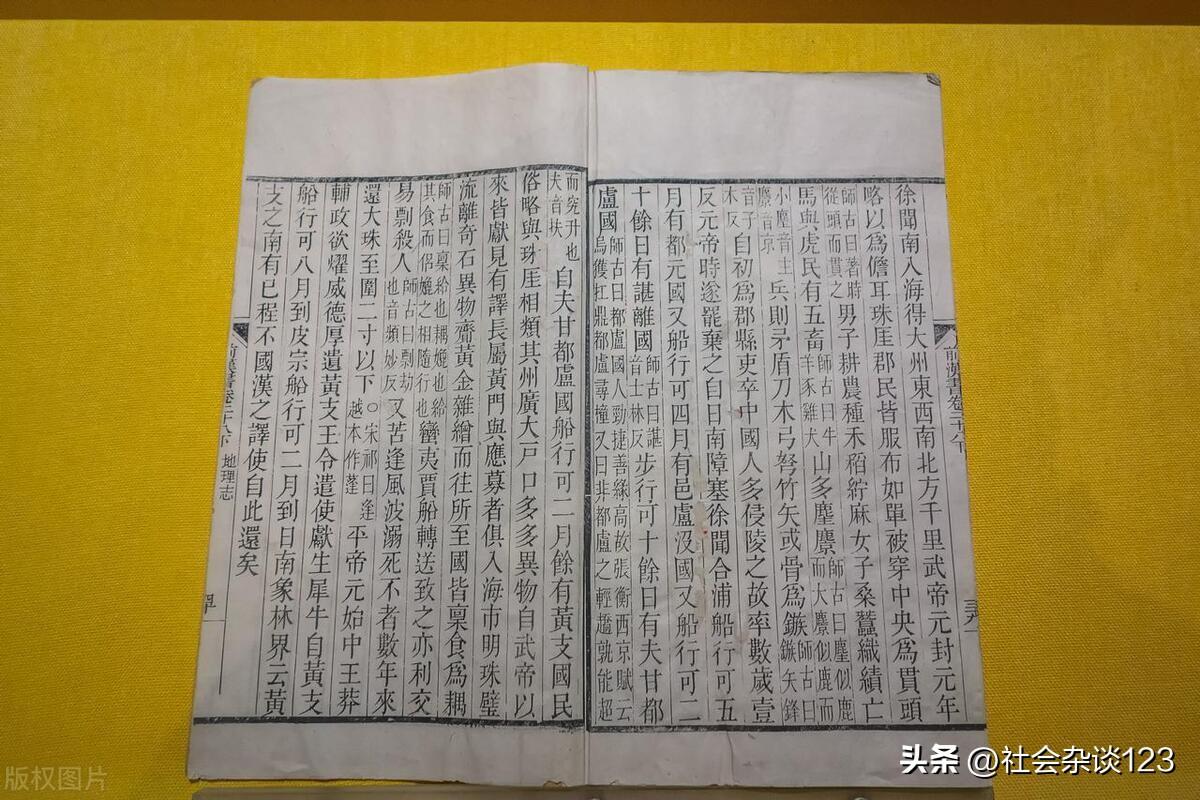 徐聞南入海得大州東西南北方千里武帝元封元年
略以爲儋耳珠厓郡民皆服布如單被穿中央爲貫頭
師古曰著時從頭而貫之男子耕農種禾稻紵麻女子桑蠶織績亡
馬與虎民有五畜師古曰牛羊豕雞犬山多麈麖師古曰麈似鹿而大麖似鹿而
小麈音主麖音京兵則矛盾刀木弓弩竹矢或骨爲鏃師古曰鏃矢鋒
音子木反自初爲郡縣吏卒中國人多侵陵之故率數歲壹
反元帝時遂罷棄之自日南障塞徐聞合浦船行可五
月有都元國又船行可四月有邑盧沒國又船行可二
十餘日有諶離國師古曰諶音士林反步行可十餘日有夫甘都
盧國師古曰都盧國人勁捷善緣高故張衡西京賦云烏獲扛鼎都盧尋橦又曰非都盧之輕趫孰能超
而究升也夫音扶自夫甘都盧國船行可二月餘有黃支國民
俗略與珠厓相類其州廣大戶口多多異物自武帝以
來皆獻見有譯長屬黃門與應募者俱入海市明珠璧
流離奇石異物齎黃金雜繒而往所至國皆稟食爲耦
師古曰稟給也耦媲也給其食而侶媲之相隨行也蠻夷賈船轉送致之亦利交
易剽殺人師古曰剽劫也音頻妙反又苦逢風波溺死不者數年來
還大珠至圍二寸以下○宋祁曰逢越本作蓬平帝元始中王莽
輔政欲燿威德厚遺黃支王令遣使獻生犀牛自黃支
船行可八月到皮宗船行可二月到日南象林界云黃
支之南有已程不國漢之譯使自此還矣
前漢書卷二十八下 地理志
版权图片
头条 @社会杂谈123